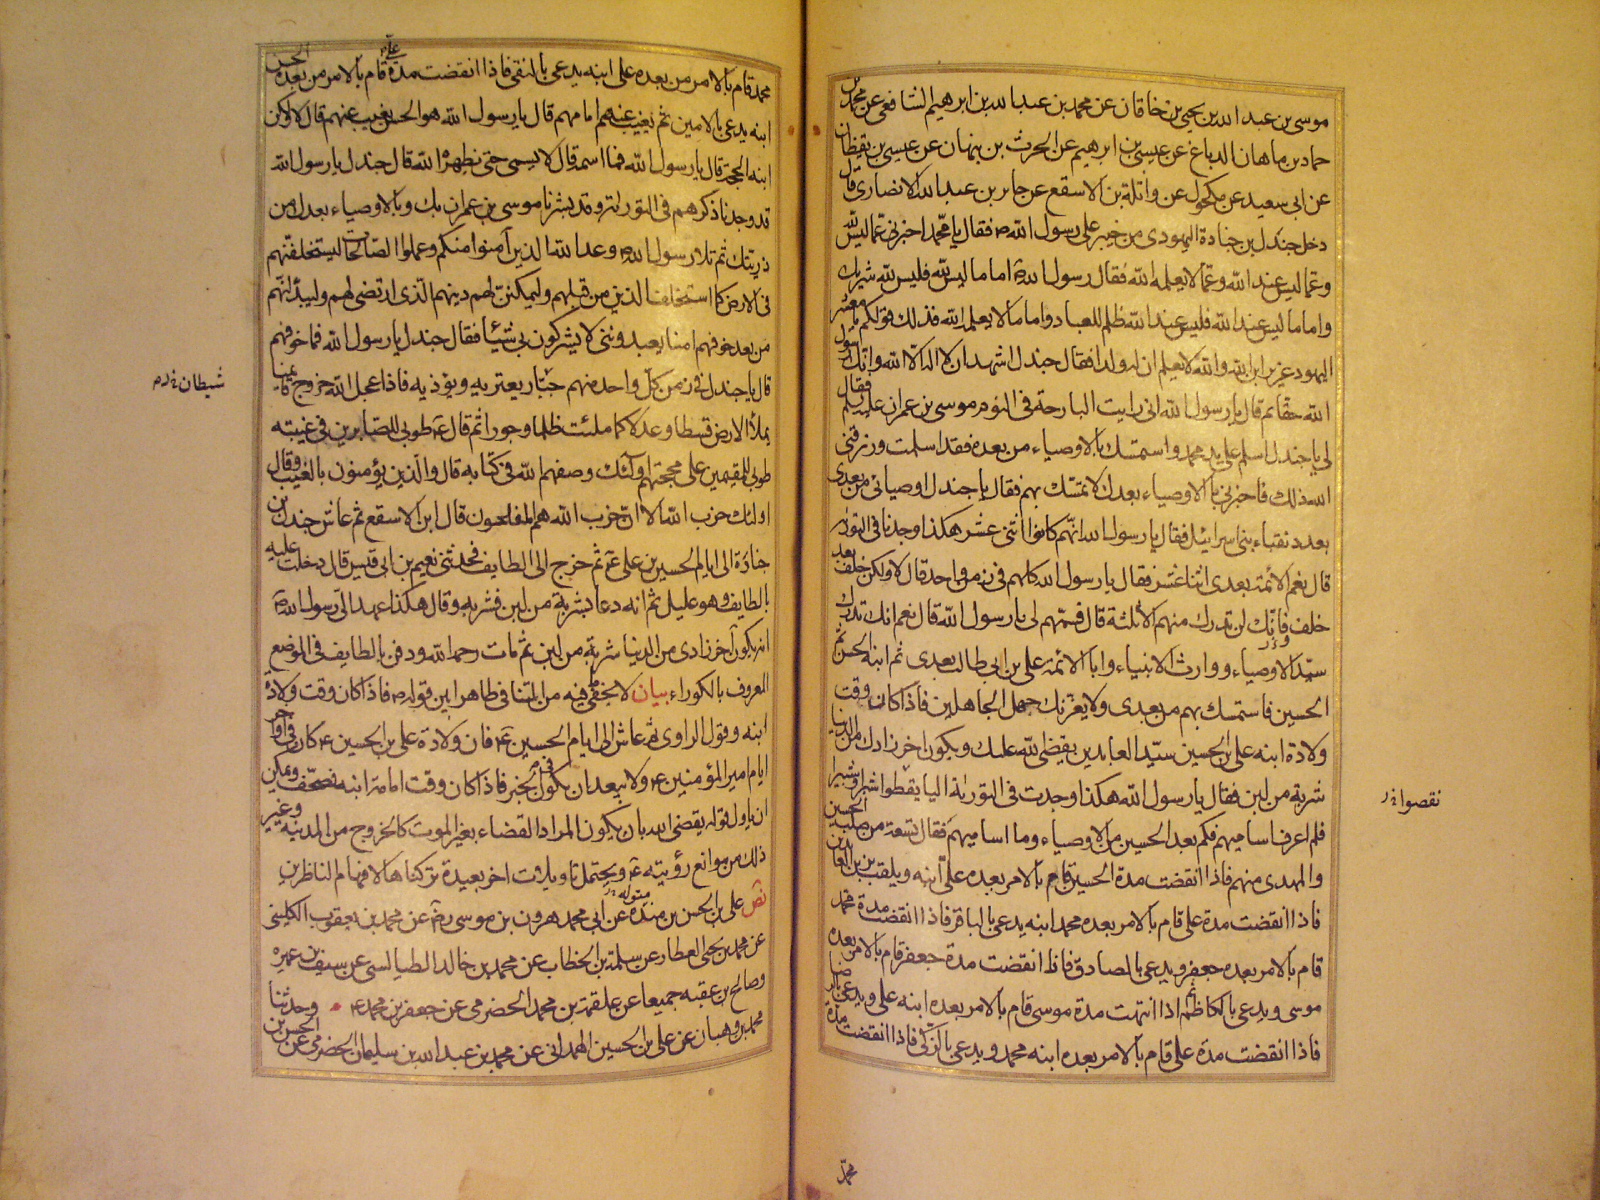 موسى بن عبد الله بن يحيى بن خاقان عن محمد بن عبد الله بن ابرهيم الشافعي عن محمد بن
حماد بن ماهان الدباغ عن عيسى بن ابرهيم عن الحرث بن نبهان عن عيسى بن يقظان
عن ابى سعيد عن مكحول عن واثلة بن الاسقع عن جابر بن عبد الله الانصارى قال
دخل جندل بن جنادة اليهودى من خيبر على رسول الله ص فقال يا محمد اخبرنى عما ليس لله
وعما ليس عند الله وعما لا يعلمه الله فقال رسول الله ص اما ما ليس لله فليس لله شريك
واما ما ليس عند الله فليس عند الله ظلم للعباد واما ما لا يعلمه الله فذلك قولكم يا معشر
اليهود عزير ابن الله والله لا يعلم ان له ولدا فقال جندل اشهد ان لا اله الا الله وانك رسول
الله حقا ثم قال يا رسول الله انى رايت البارحة فى النوم موسى بن عمران عليه السلم فقال
لى يا جندل اسلم على يد محمد واستمسك بالاوصياء من بعده فقد اسلمت ورزقنى
الله ذلك فاخبرنى بالاوصياء بعدك لاتمسك بهم فقال يا جندل اوصيائى من بعدى
بعدد نقباء بنى اسرائيل فقال يا رسول الله انهم كانوا اثنى عشر هكذا وجدنا فى التورية
قال نعم الائمة بعدى اثنا عشر فقال يا رسول الله كلهم فى زمن واحد قال لا ولكن خلف بعد
خلف فانك لن تدرك منهم الا ثلثة قال فسمهم لى يا رسول الله قال نعم انك تدرك
سيد الاوصياء ووارث الانبياء وابا الائمة على بن ابى طالب بعدى ثم ابنه الحسن ثم
الحسين فاستمسك بهم من بعدى ولا يغرنك جهل الجاهلين فاذا كان وقت
ولادة ابنه على بن الحسين سيد العابدين يقضى الله عليك ويكون اخر زادك من الدنيا
شربة من لبن فقال يا رسول الله هكذا وجدت فى التورية اليا يقطوا شبرا وشبيرا
فلم اعرف اساميهم فكم بعد الحسين من الاوصياء وما اساميهم فقال تسعة من صلب الحسين
والمهدى منهم فاذا انقضت مدة الحسين قام بالامر بعده على ابنه ويلقب بزين العابدين
فاذا انقضت مدة على قام بالامر بعده محمد ابنه يدعى بالباقر فاذا انقضت مدة محمد
قام بالامر بعده جعفر ويدعى بالصادق فاذا انقضت مدة جعفر قام بالامر بعده
موسى ويدعى بالكاظم ثم اذا انتهت مدة موسى قام بالامر بعده ابنه على ويدعى بالرضا
فاذا انقضت مدة على قام بالامر بعده ابنه محمد ويدعى بالزكى فاذا انقضت مدة
نقصوا خ ر
محمد
محمد قام بالامر من بعده على ابنه يدعى بالنقى فاذا انقضت مدة على قام بالامر من بعده الحسن
ابنه يدعى بالامين ثم يغيب عنهم امامهم قال يا رسول الله هو الحسن يغيب عنهم قال لا ولكن
ابنه الحجة قال يا رسول الله فما اسمه قال لا يسمى حتى يظهره الله قال جندل يا رسول الله
قد وجدنا ذكرهم فى التورية وقد بشرنا موسى بن عمران بك وبالاوصياء بعدك من
ذريتك ثم تلا رسول الله ص وعد الله الذين آمنوا منكم وعملوا الصالحات ليستخلفنهم
فى الارض كما استخلف الذين من قبلهم وليمكنن لهم دينهم الذى ارتضى لهم وليبدلنهم
من بعد خوفهم امنا يعبدوننى لا يشركون بى شيئا فقال جندل يا رسول الله فما خوفهم
قال يا جندل فى زمن كل واحد منهم جبار يعتريه ويؤذيه فاذا عجل الله خروج قائمنا
يملأ الارض قسطا وعدلا كما ملئت ظلما وجورا ثم قال ع طوبى للصابرين فى غيبته
طوبى للمقيمين على محجتهم اولئك وصفهم الله فى كتابه قال والذين يؤمنون بالغيب وقال
اولئك حزب الله الا ان حزب الله هم المفلحون قال ابن الاسقع ثم عاش جندل بن
جنادة الى ايام الحسين بن على ع ثم خرج الى الطايف فحدثنى نعيم بن ابى قيس قال دخلت عليه
بالطايف وهو عليل ثم انه دعا بشربة من لبن فشربه وقال هكذا عهد الى رسول الله ص
انه يكون آخر زادى من الدنيا شربة من لبن ثم مات رحمه الله ودفن بالطايف فى الموضع
المعروف بالكوراء بيان لا يخفى ما فيه من التنافى ظاهرا بين قوله ص فاذا كان وقت ولادة
ابنه وقول الراوى ثم عاش الى ايام الحسين ع فان ولادة على بن الحسين ع كان فى آواخر
ايام امير المؤمنين ع ولا يبعد ان يكون فى الخبر فاذا كان وقت امامة ابنه فصحف ويمكن
ان ياول قوله يقضى الله بان يكون المراد القضاء بغير الموت كالخروج من المدينة وغير
ذلك من موانع رؤيته ع ويحتمل تاويلات اخر بعيدة تركناها لافهام الناظرين
نص على بن الحسن بن مندة عن ابى محمد هرون بن موسى رض عن محمد بن يعقوب الكلينى
عن محمد بن يحيى العطار عن سلمة بن الخطاب عن محمد بن خالد الطيالسى عن سيف بن عميرة
وصالح بن عقبه جميعا عن علقمة بن محمد الحضرمى عن جعفر بن محمد ع وحدثنا
محمد بن وهبان عن على بن الحسين الهمدانى عن محمد بن عبد الله بن سليمان الحضرمى عن الحسن بن
شيطان خ ر م